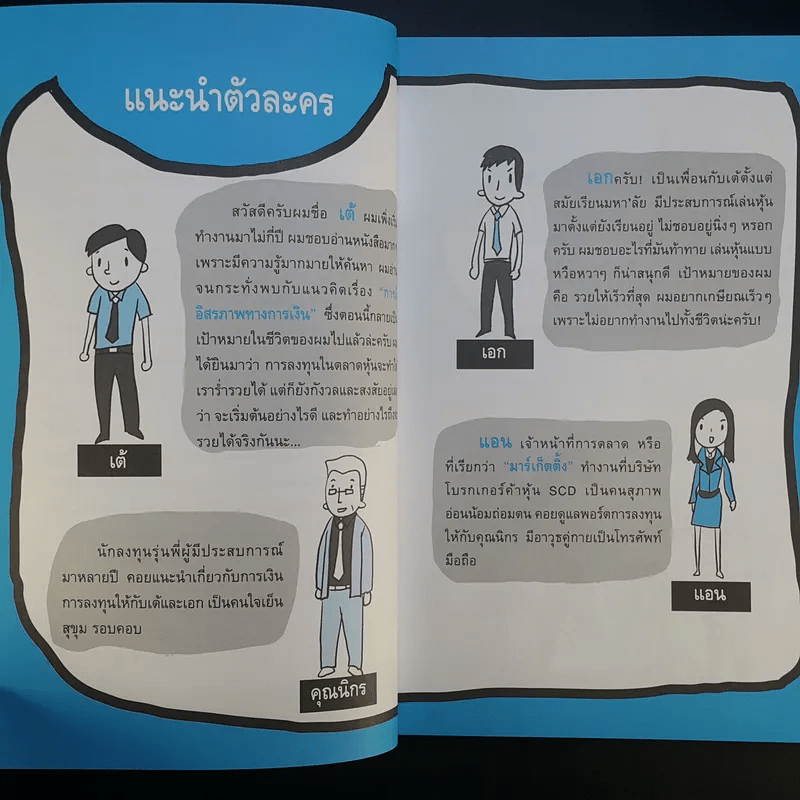 แนะนำตัวละคร
สวัสดีครับผมชื่อ เต้ ผมเพิ่ง
ทำงานมาไม่กี่ปี ผมชอบอ่านหนังสือมาก
เพราะมีความรู้มากมายให้ค้นหา ผมอ่าน
จนกระทั่งพบกับแนวคิดเรื่อง
อิสรภาพทางการเงิน” ซึ่งตอนนี้กลายเป็น
เป้าหมายในชีวิตของผมไปแล้วล่ะครับ
ได้ยินมาว่า การลงทุนในตลาดหุ้นจะทำให้
เราร่ำรวยได้ แต่ก็ยังกังวลและสงสัยอยู่
ว่า จะเริ่มต้นอย่างไรดี และทำอย่างไรถึงจะ
รวยได้จริงกันนะ...
เต้
นักลงทุนรุ่นพี่ผู้มีประสบการณ์
มาหลายปี คอยแนะนำเกี่ยวกับการเงิน
การลงทุนให้กับเต้และเอก เป็นคนใจเย็น
สุขุม รอบคอบ
คุณนิกร
เอกครับ! เป็นเพื่อนกับเต้ตั้งแต่
สมัยเรียนมหา’ลัย มีประสบการณ์เล่นหุ้น
มาตั้งแต่ยังเรียนอยู่ ไม่ชอบอยู่นิ่งๆ หรอก
ครับ ผมชอบอะไรที่มันท้าทาย เล่นหุ้นแบบ
หวือหวาๆ ก็น่าสนุกดี เป้าหมายของผม
คือ รวยให้เร็วที่สุด ผมอยากเกษียณเร็วๆ
เพราะไม่อยากทำงานไปทั้งชีวิตน่ะครับ!
เอก
แอน เจ้าหน้าที่การตลาด หรือ
ที่เรียกว่า “มาร์เก็ตติ้ง” ทำงานที่บริษัท
โบรกเกอร์ค้าหุ้น SCD เป็นคนสุภาพ
อ่อนน้อมถ่อมตน คอยดูแลพอร์ตการลงทุน
ให้กับคุณนิกร มีอาวุธคู่กายเป็นโทรศัพท์
มือถือ
แอน